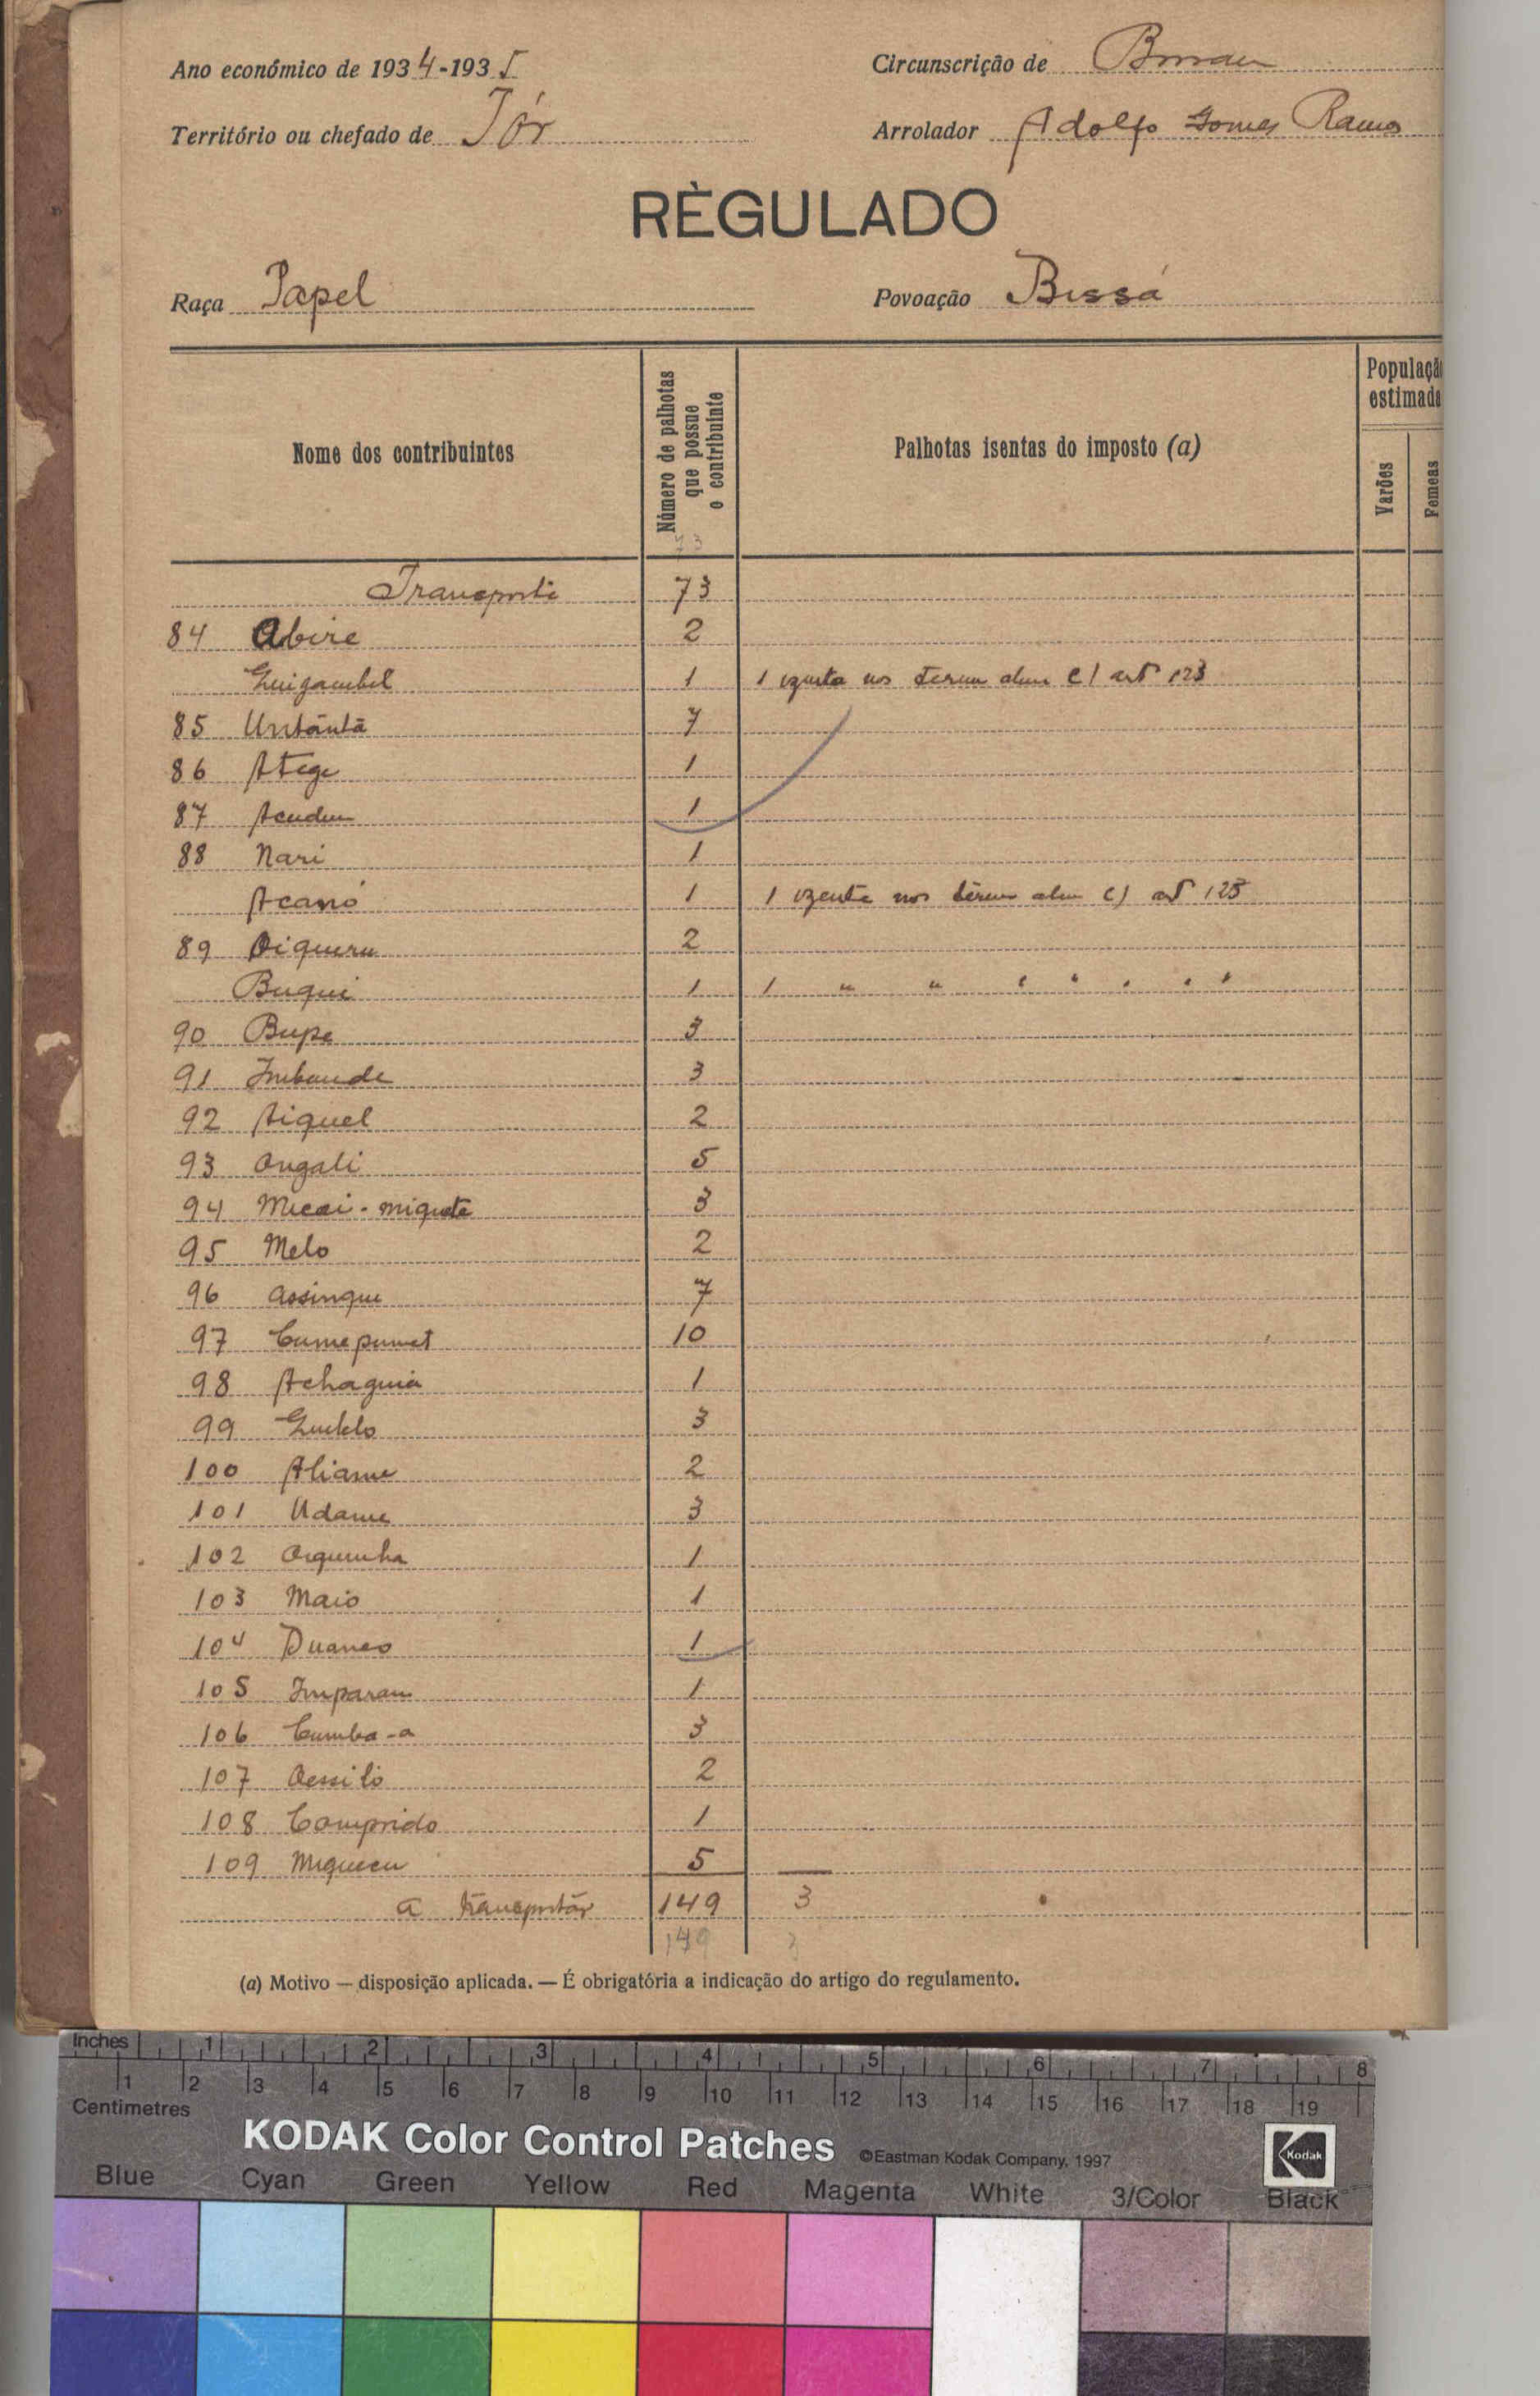 Ano económico de 1934-1935
Circunscrição de
Território ou chefado de Tór
Arrolador Adolfo Gomes Ramos
RÈGULADO
Raça Papel
Povoação Bissá
Nome dos contribuintes
Número de palhotas que possue o contribuinte
Palhotas isentas do imposto (a)
Populaçã
estimada
Varões
Femeas
73
Transporte 73
84 Abire 2
Guigambil 1 1 izenta nos termos alinea c) artº 123
85 Untántã 7
86 Atege 1
87 1
88 Nari 1
Acanó 1 1 izenta nos termos alinea c) artº 123
89 2
Buqui 1 1 " " " " " " "
90 Bupe 3
91 Imbunde 3
92 Aiquel 2
93 Ongali 5
94 Micai-miquete 3
95 Melo 2
96 Assinque 7
97 Cumepumet 10
98 Achaguia 1
99 3
100 Aliame 2
101 Udame 3
102 1
103 Maio 1
104 1
105 Imparam 1
106 Cumba-a 3
107 2
108 Comprido 1
109 5
a transportár 149 3
149 3
(a) Motivo — disposição aplicada. — É obrigatória a indicação do artigo do regulamento.
Inches 1 2 3 4 5 6 7 8
1 2 3 4 5 6 7 8 9 10 11 12 13 14 15 16 17 18 19
Centimetres
KODAK Color Control Patches ©Eastman Kodak Company, 1997 Kodak
Blue Cyan Green Yellow Red Magenta White 3/Color Black